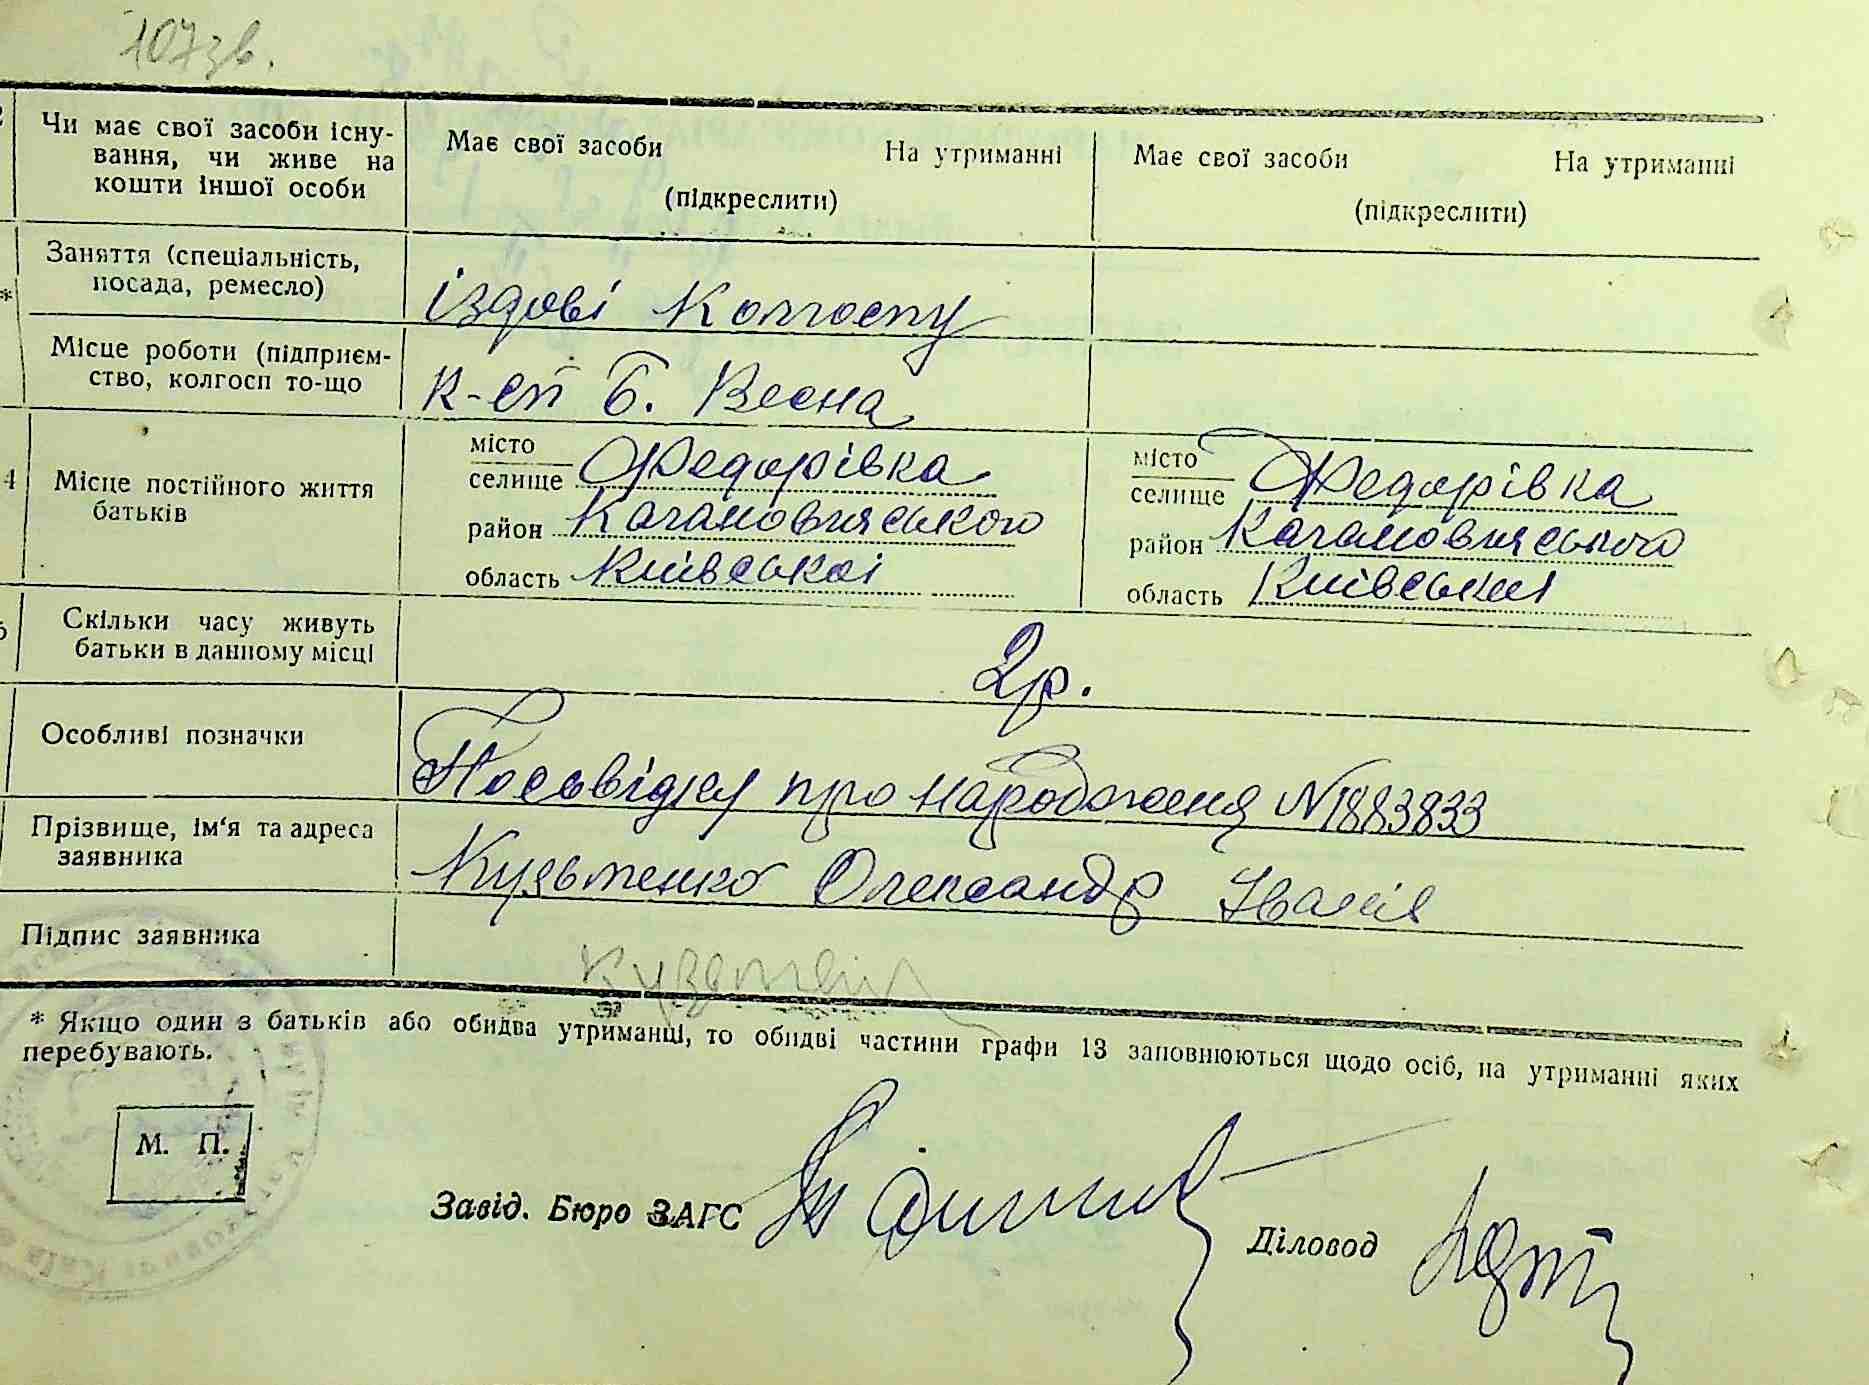 107зв.
Чи має свої засоби існу-
вання, чи живе на
кошти іншої особи
Має свої засоби На утриманні
(підкреслити)
Має свої засоби На утриманні
(підкреслити)
Заняття (спеціальність,
посада, ремесло)
їздові Колгоспу
Місце роботи (підприєм-
ство, колгосп то-що
К-сп Б. Весна
4 Місце постійного життя
батьків
місто
селище Федорівка
район Кагановичського
область Київської
місто
селище Федорівка
район Кагановичського
область Київської
Скільки часу живуть
батьки в данному місці
2р.
Особливі позначки
Посьвідку про народженя N1883833
Прізвище, ім'я та адреса
заявника
Кузьменко Олександр
Підпис заявника
* Якщо один з батьків або обидва утриманці, то обидві частини графи 13 заповнюються щодо осіб, на утриманні яких
перебувають.
М. П.
Завід. Бюро ЗАГС
Діловод